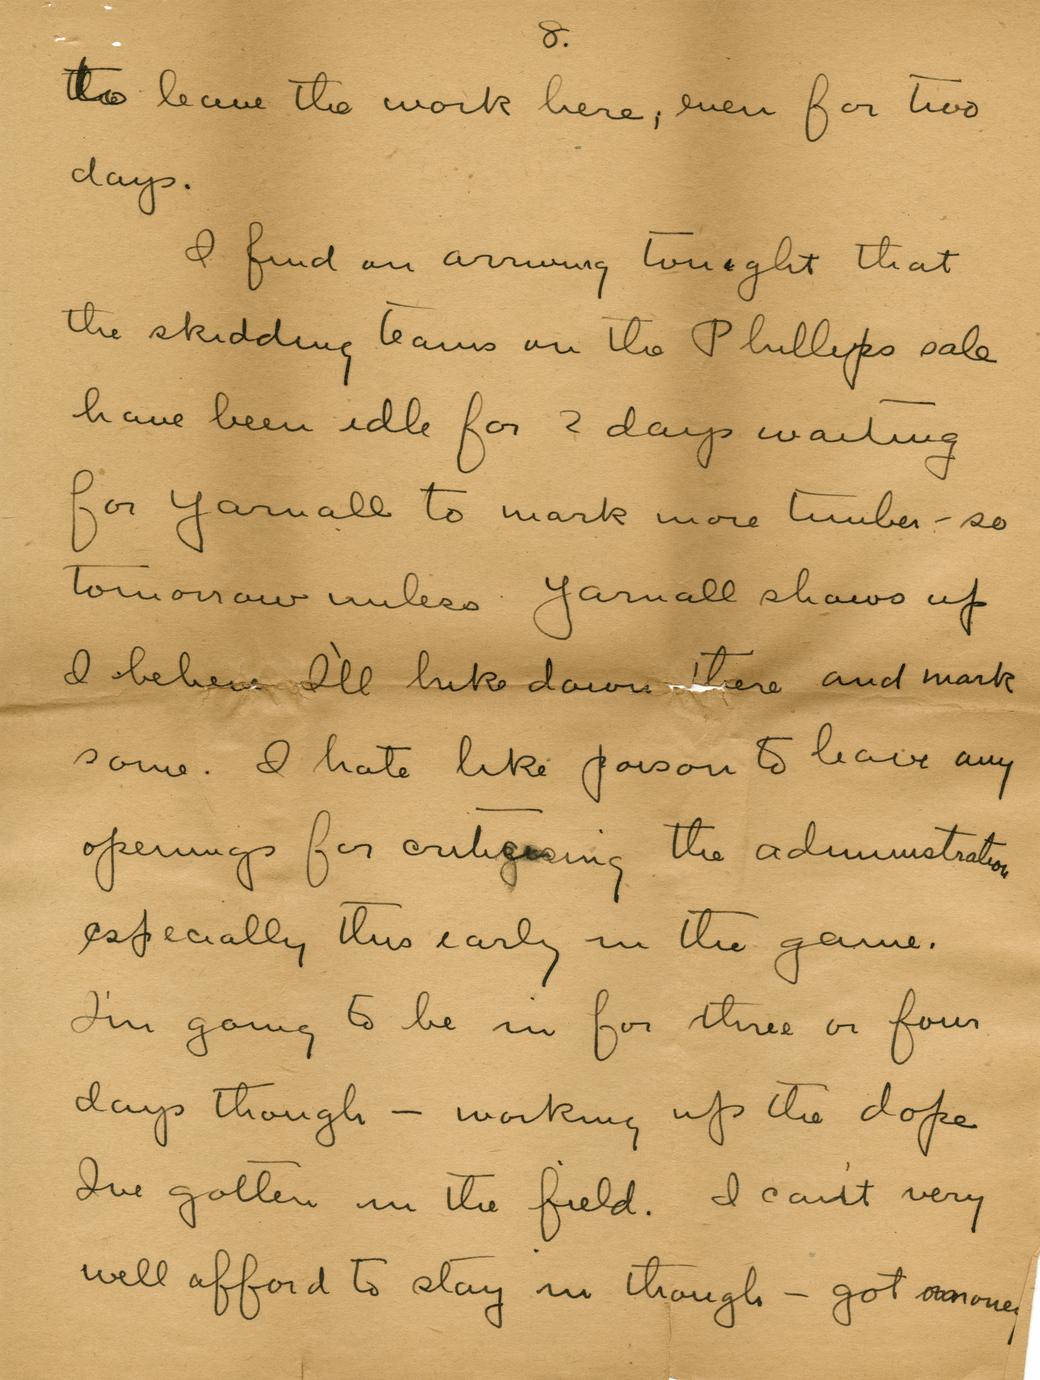 8.
to leave the work here, even for two
days.
I find on arriving tonight that
the skidding teams on the Phillips sale
have been idle for 2 days waiting
for Yarnall to mark more timber - so
tomorrow unless Yarnall shows up
I believe I'll hike down there and mark
some. I hate like poison to leave any
openings for criticising the administration
especially this early in the game.
I'm going to be in for three or four
days though — working up the dope
I've gotten in the field. I can't very
well afford to stay in though — got money